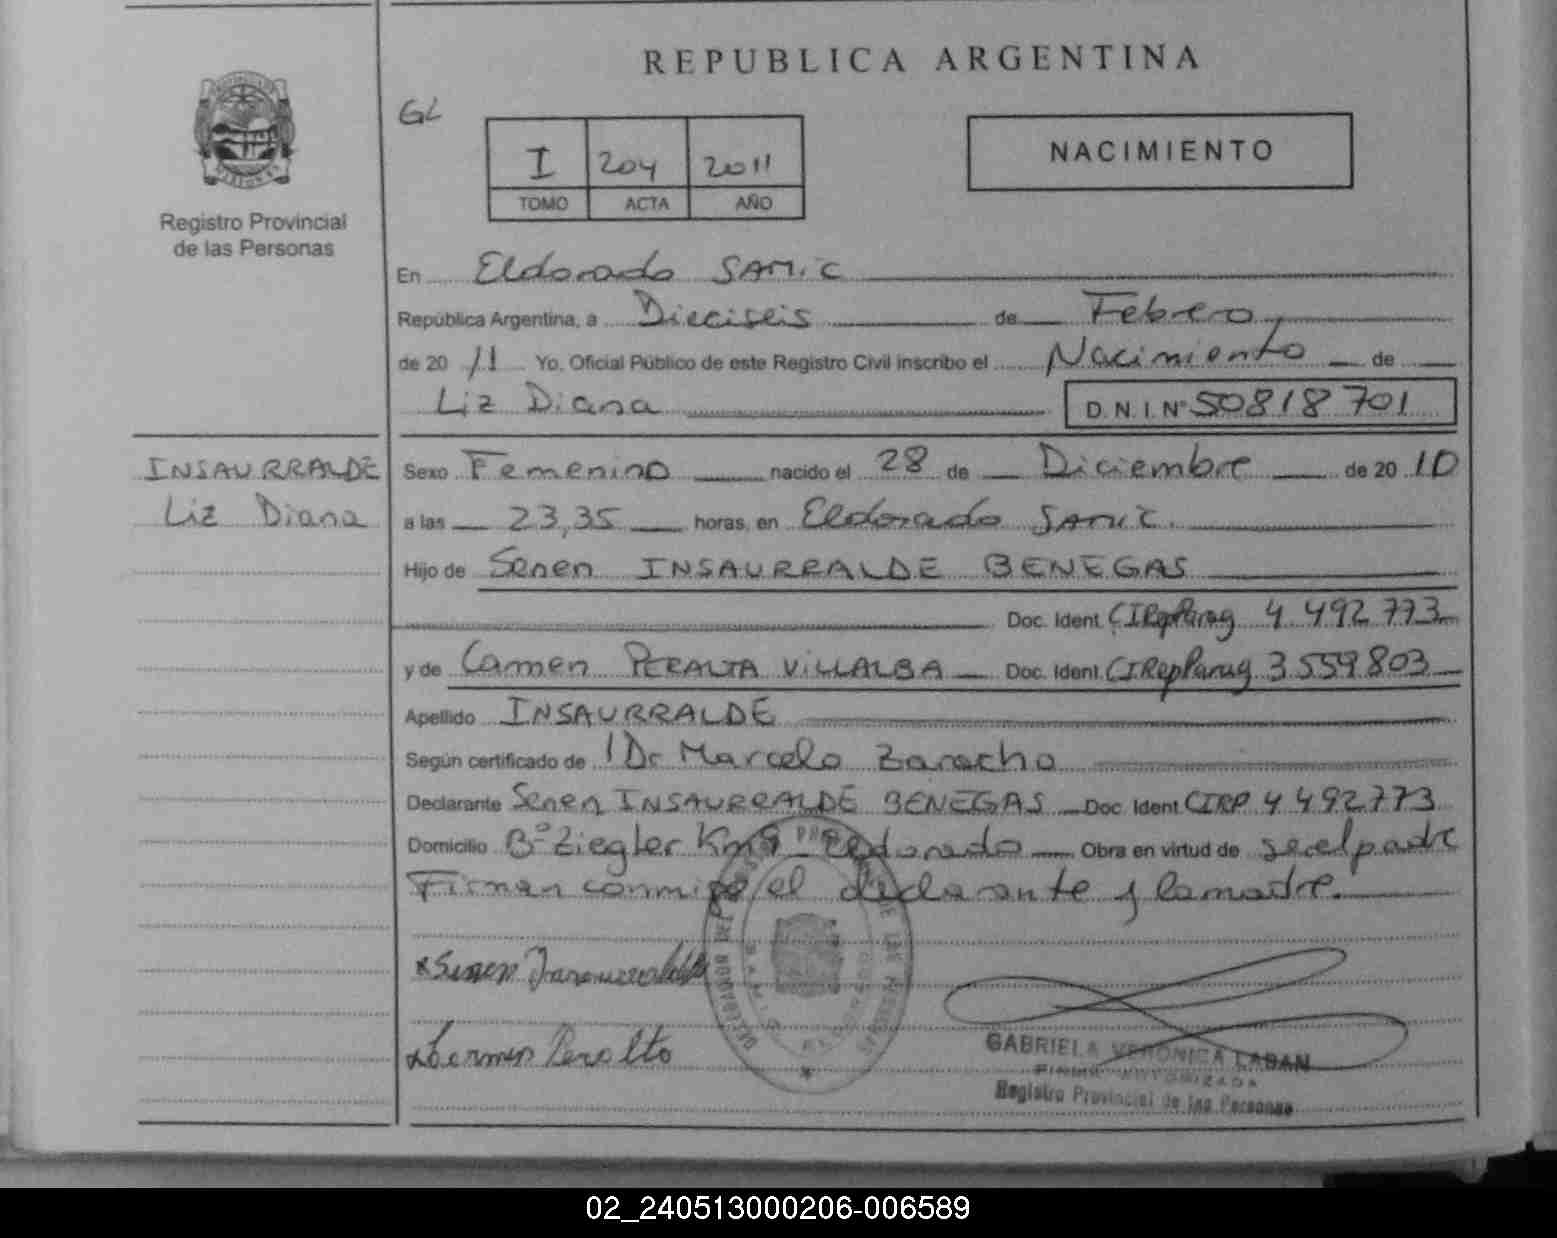 REPUBLICA ARGENTINA
GL
I 204 2011
TOMO ACTA AÑO
NACIMIENTO
Registro Provincial
de las Personas
En Eldorado SAMIC
República Argentina, a Dieciseis de Febrero,
de 20 11 Yo, Oficial Público de este Registro Civil inscribo el Nacimiento de
Liz Diana D.N.I. Nº 50818701
INSAURRALDE
Liz Diana
Sexo Femenino nacido el 28 de Diciembre de 20 10
a las 23,35 horas, en Eldorado SAMIC.
Hijo de Senen INSAURRALDE BENEGAS
Doc. Ident. CIRepParag 4.492.773
y de Carmen PERALTA VILLALBA Doc. Ident. CIRepParag 3.559.803
Apellido INSAURRALDE
Según certificado de 1Dr Marcelo Zaracho
Declarante Senen INSAURRALDE BENEGAS Doc. Ident. CIRP 4.492.773
Domicilio Bº Ziegler Km 9 Eldorado Obra en virtud de ser el padre
Firman conmigo el declarante y la madre.
Senen Insaurralde
Carmen Peralta
DELEGACION DE LAS PERSONAS
ELDORADO
GABRIELA VERONICA LABAN
FIRMA AUTORIZADA
Registro Provincial de las Personas
02_240513000206-006589